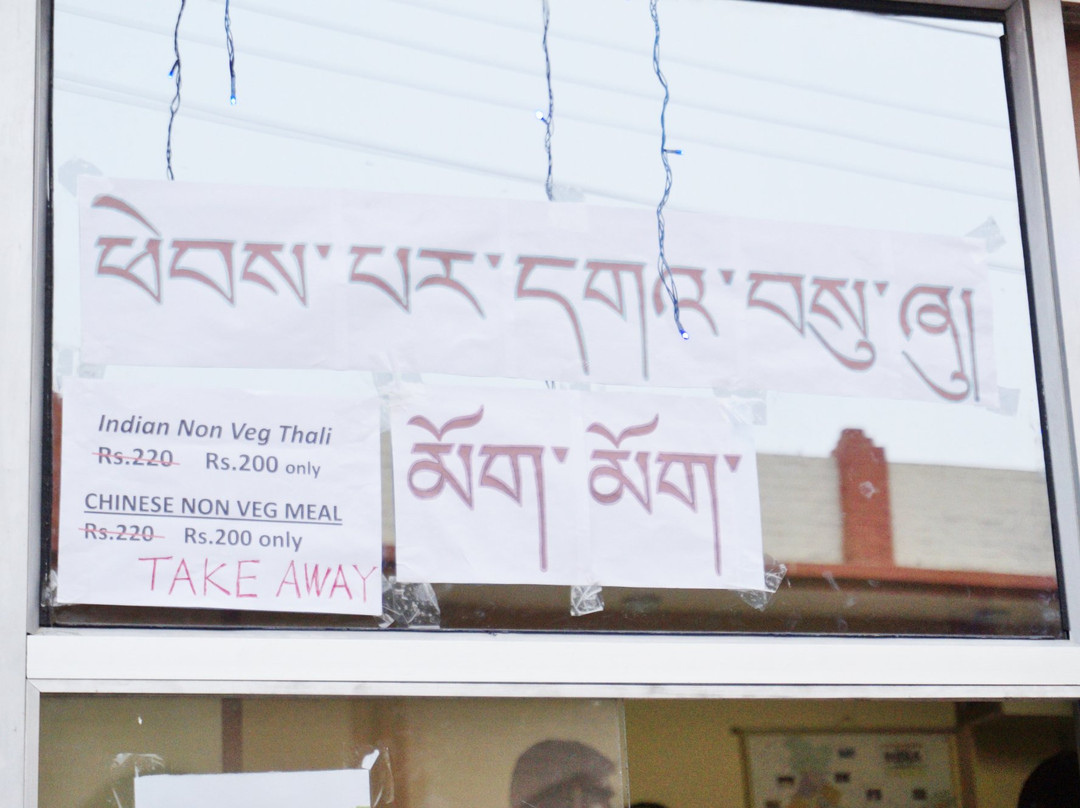 ཕེབས་པར་དགའ་བསུ་ཞུ།
Indian Non Veg Thali
Rs.220 Rs.200 only
CHINESE NON VEG MEAL
Rs.220 Rs.200 only
TAKE AWAY
མོག་མོག་